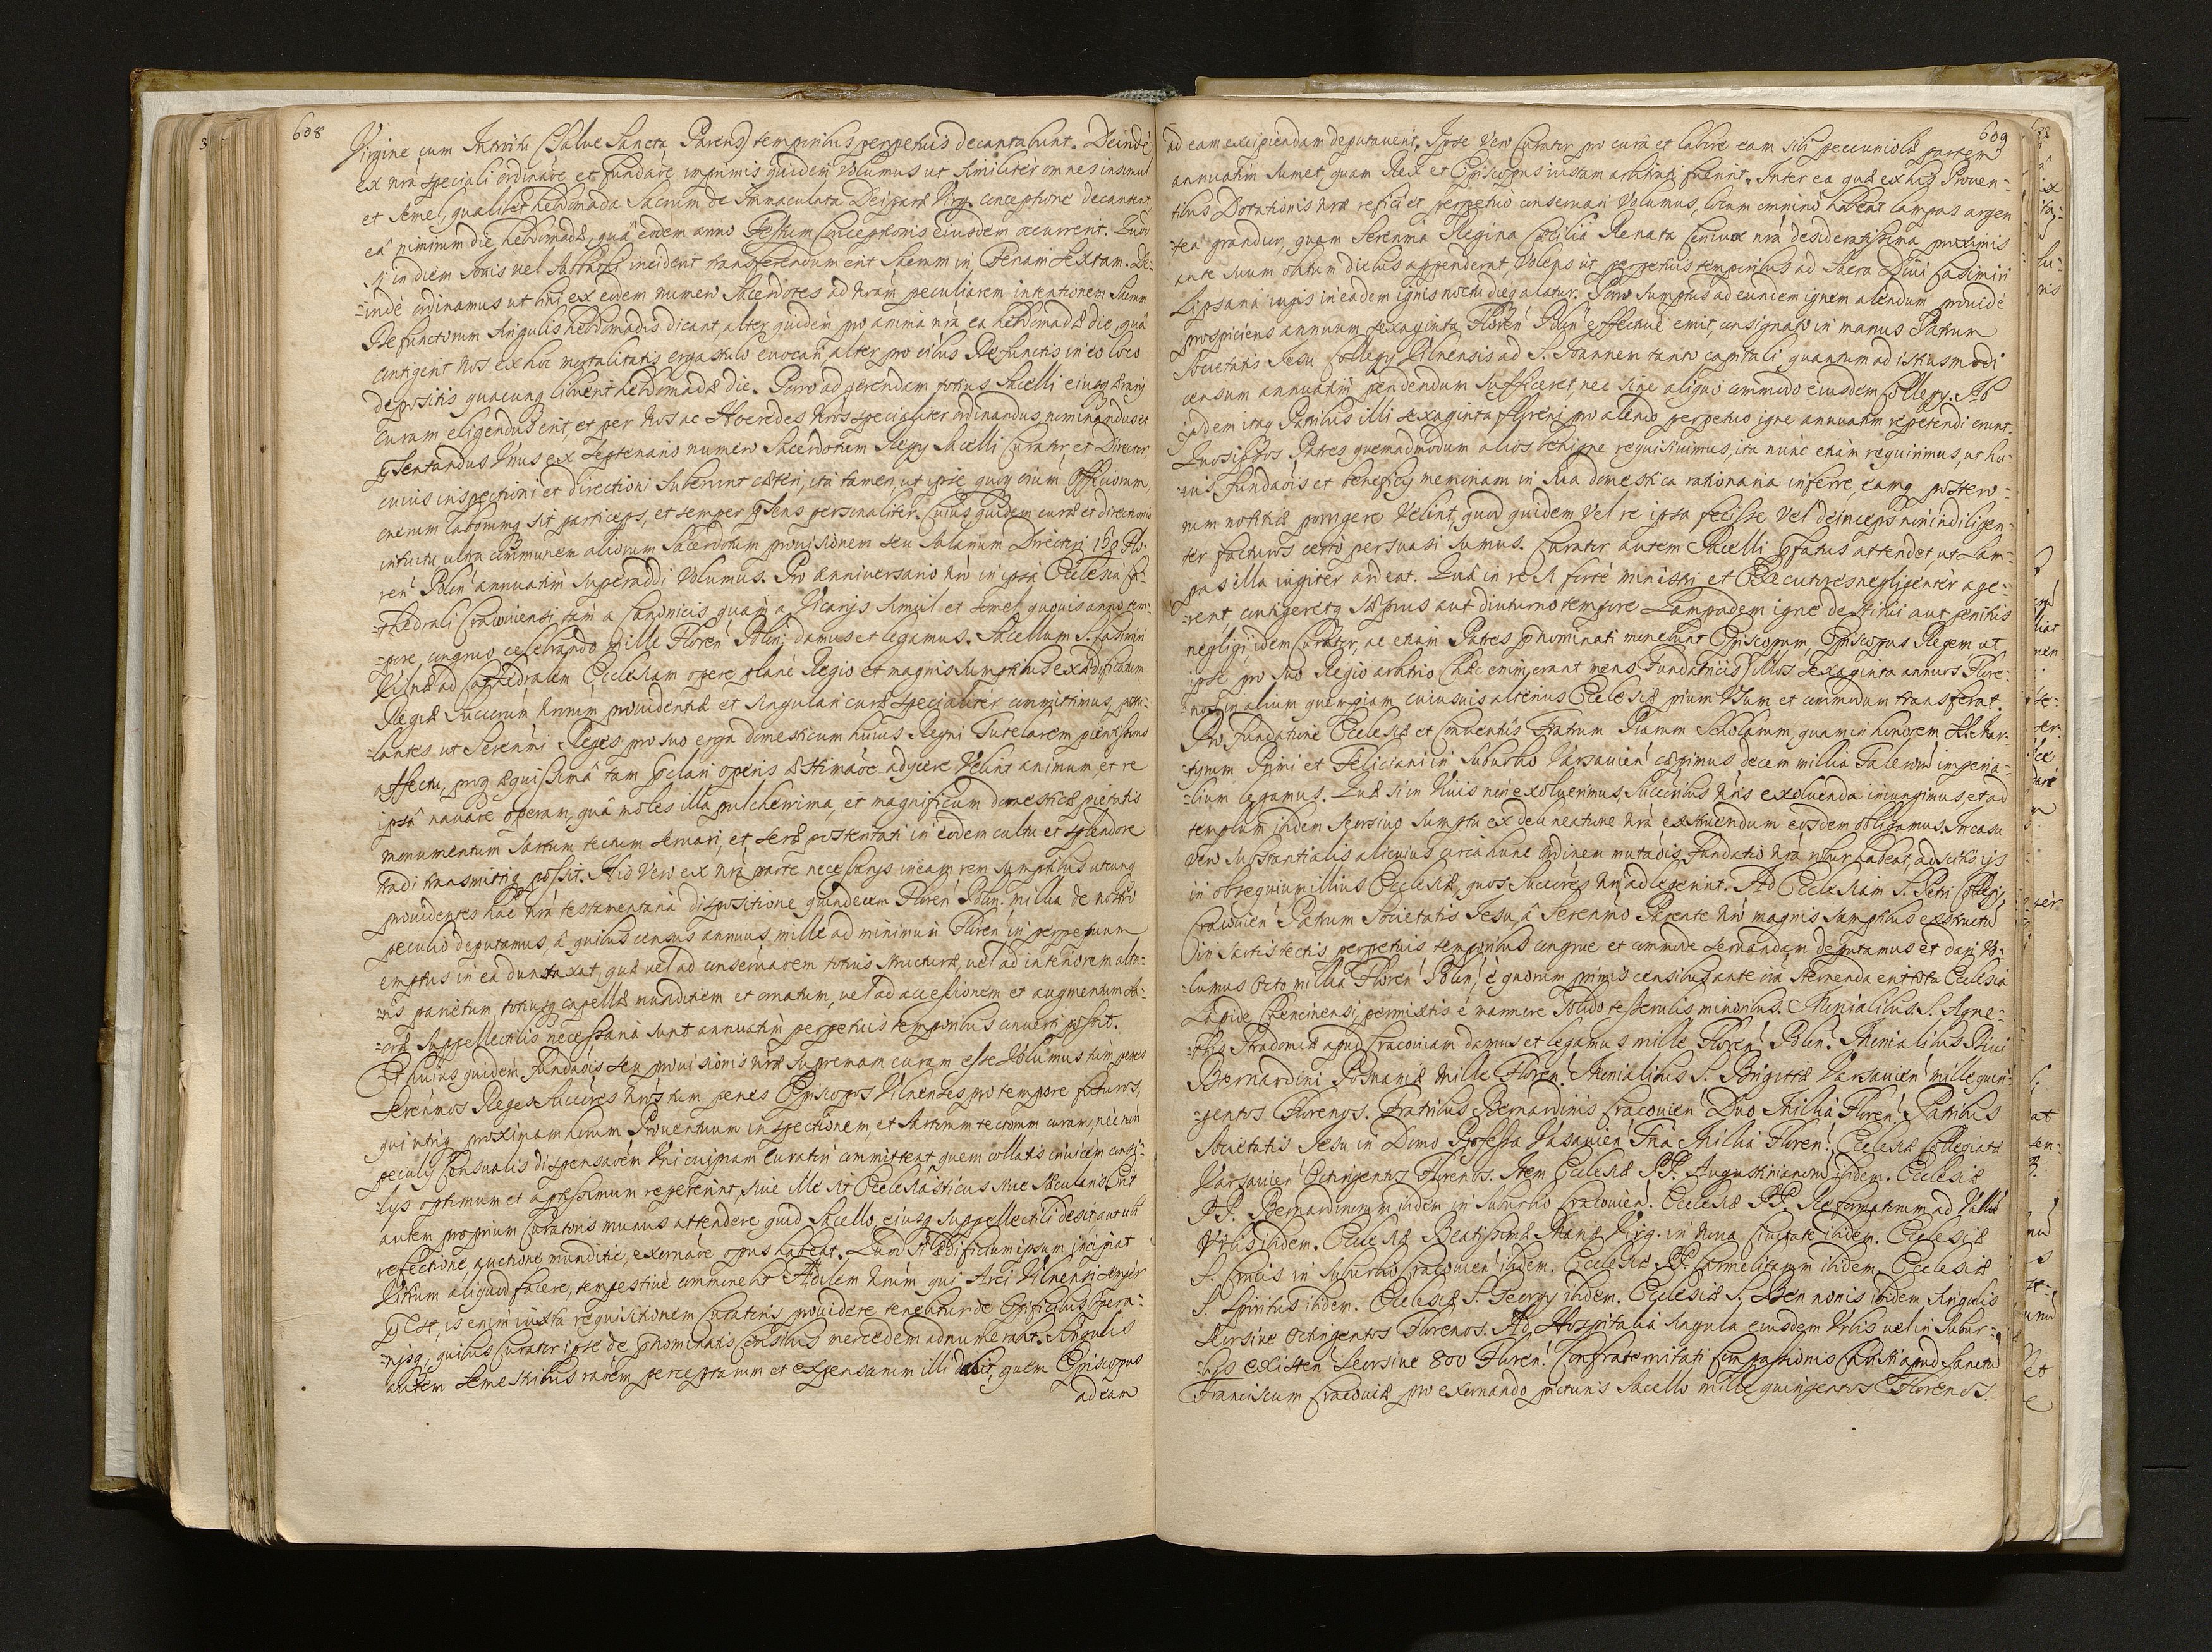 608
Virgine cum Introitu (Salve Sancta Parens) temporibus perpetuis decantabunt. Deinde
ex nrâ speciali ordinaõe et fundaõe imprimis quidem Volumus ut similiter omnes insimul
et semel, qualibet hebdomada Sacrum de Immaculata Deiparæ Virg. conceptione decantent,
eâ nimirum die hebdomadæ, quâ eodem anno Festum Conceptionis eiusdem occurrent. Quod
si in diem Iovis vel incident transferendum erit Sacrum in Feriam Sextam. De-
-inde ordinamus ut bini ex eodem numero Sacerdotes ad nram peculiarem intentionem Sacrum
Defunctorum singulis hebdomadis dicant, alter quidem pro anima nrâ ea hebdomadæ die, quâ
contigerit Nos ex hoc mortalitatis ergastulo evocari, alter pro oibus Defunctis in eo loco
depositis quacunq libuerit hebdomadæ die. Porro ad gerendam totius Sacelli eiusq ærarij
Curam eligendus erit, et per Nos ac Hoeredes Nros specialiter ordinandus, nominandus et
psentandus Unus ex Septenario numero Sacerdotum Regij Sacelli Curator et Director,
cuius inspectioni et directioni suberunt cæteri, ita tamen, ut ipse quoq oium Officiorum,
onerum laborumq sit particeps, et semper psens personaliter. Cuius quidem curæ et directionis
intuitu ultra communem aliorum Sacerdotum provisionem seu Solarium Directori 160 Flo-
ren Polin annuatim superaddi Volumus. Pro Anniversario Nro in ipsa Ecclesia Ca-
-thedrali Cracoviensi, tam a Canonicis, quam a Vicarijs simul et semel quovis anno tem-
-pore, congruo celebrando mille Floren Polin: damus et legamus. Sacellum S. Casimiri
Vilnæ ad Cathedralem Ecclesiam opere plane Regio et magnis sumptibus exædificatum
Regiæ Succrum Nrorum providentiæ et singulari curæ specialiter committimus, postu-
-lantes, ut Serenmi Reges pro suo erga domesticum huius Regni Tutelarem pientissimo
affectu, proq æquissimâ tam pclari operis æstimaõe adijcere Velint animum, et re
ipsâ navare operam, quâ moles illa pulcherrima, et magnificum domesticæ pietatis
monumentum sartum tectum servari, et seræ posteritati in eodem cultu et splendore
tradi transmittiq possit. Hic Vero ex nrâ parte necessarijs in eam rem sumptibus utcunq
providentes hac nrâ testamentaria dispositione quindecem Floren Polin: millia de nostro
peculio deputamus, â quibus census annuus, mille ad minimum Floren in perpetuum
emptus in ea duntaxat, quæ vel ad conservaõem totius structuræ, vel ad interiorem
parietum, totiusq capellæ munditiem et ornatum, vel ad accessionem et augmentum
Suppellectilis necessaria sunt annuatim perpetuis temporibus converti possit.
Et huius quidem fundaõis seu provisionis nræ supremam curam esse Volumus tum penes
Serenmos Reges Succres Nros tum penes Episcopos Vilnenses pro tempore futuros,
qui utriq proximam horum Proventuum inspectionem, et sartorum tectorum curam, nec non
peculij Censualis dispensaõem Uni cuipiam Curatori committent quem collatis invicem consi-
lijs optimum et aptissimum repererint, sive ille sit Ecclesiasticus sive Sæcularis. Erit
autem proprium Curatoris munus attendere quid Sacello, eiusq suppellectili desit aut ubi
refectione auctione, munditie, exornaõe opus habeat. Quod si Ædificium ipsum incipiat
Vitium aliquod facere, tempestive commonebit Ædilem Nrum, qui Arci Vilnensi semper
pest, is enim iuxta requisitionem Curatoris providere tenebitur de Opificibus Opera-
-rijsq, quibus Curator ipse de pnominatis Censibus mercedem adnumerabit. Singulis
autem semestribus raõem perceptarum et expensarum illi dabit, quem Episcopus
ad eam
609
ad eam excipiendam deputaverit. Ipse Vero Curator pro curâ et labore eam sibi pecuniolæ partem
annuatim sumet, quam Rex et Episcopus iustam arbitrati fuerint. Inter ea quæ ex his Proven-
tibus Dotationis nræ refici et perpetuo conservari Volumus, locum omnino habeat lampas argen
-tea grandior, quam Serenma Regina Cæcilia Renata Coniux nrâ desideratissima proximis
ante suum obitum diebus appenderat, Volens ut perpetuis temporibus ad Sacra Divi Casimiri
Lipsana iugis in eadem ignis noctu dieq alatur. Porro sumptus ad eundem ignem alendum provide
prospiciens annuum sexaginta Floren Polin effective emit, consignato in manus Patrum
Societatis Iesu Collegij Vilnensis ad S. Ioannem tanto capitali quantum ad istiusmodi
censum annuatim pendendum sufficeret, nec sine aliquo commodo eiusdem Collegij. Ab
iisdem itaq Patribus illi sexaginta floreni pro alendo perpetuo igne annuatim repetendi erunt.
Quos ipsos Patres quemadmodum alios benigne requisivimus, ita nunc etiam requirimus, ut hu-
-ius fundaõis et beneficij memoriam in sua domestica rationaria inferre, eamq postero-
rum notitiæ porrigere Velint, quod quidem Vel re ipsa fecisse Vel deinceps non indiligen-
ter facturos certo persuasi sumus. Curator autem Sacelli pfatus attendet, ut Lam-
pas illa iugiter ardeat. Quâ in re si forte ministri et Executores negligenter age-
-rent contigeretq sæpius aut diuturno tempore Lampadem igne destitui aut penitus
negligi, idem Curator, ac etiam Patres pnominati monebunt Episcopum Episcopus Regem ut
ipse pro suo Regio arbitrio (hæc enim erat mens Fundatricis) illos sexaginta annuos Flore-
-nos in alium quempiam cuiusvis alterius Ecclesiæ pium Usum et commodum transferat.
Pro fundatione Ecclesiæ et Conventûs Fratrum Piarum Scholarum, quam in honorem SS. Mar-
-tyrum Primi et Feliciani in Suburbio Varsavien cæpimus, decem millia Talerorum imperia-
-lium legamus. Quæ si in Vivis non exolverimus, Succribus Nris exolvenda iniungimus, et ad
templum ibidem seorsivo sumptu ex delineatione nrâ exstruendum eosdem obligamus. In casu
vero substantialis alicuius circa hunc Ordinem mutaõis, Fundatio nra robur habeat, adscitis ijs
in obsequium illius Ecclesiæ, quos Succres Nri adlegerint. Ad Ecclesiam S. Petri Collegij
Cracovien Patrum Societatis Iesu, â Serenmo Parente Nro magnis sumptibus exstructâ
in sartis tectis, perpetuis temporibus congrue et commode servandam deputamus et dari Vo-
-lumus Octo millia Floren Polin, è quorum primis censibus ante oia sternenda erit tota Ecclesia
Lapide Chencinensi, permixtis è marmore Solido tesserulis minoribus. Monialibus S. Agne-
-this Stradomiæ apud Cracoviam damus et legamus mille Floren Polin. Monialibus Divi
Bernardini Posnaniæ mille Floren. Monialibus S. Brigittæ Varsavien mille quin-
-gentos Florenos. Fratribus Bernardinis Cracovien Duo Millia Floren. Patribus
Societatis Iesu in Domo Professa Varsavien Tria Millia Floren. Ecclesiæ Collegiatæ
Varsavien Octingentos Florenos. Item Ecclesiæ PP. Augustinianorum ibidem. Ecclesiæ
PP. Bernardinorum ibidem in suburbio Cracovien. Ecclesiæ PP. Reformatorum ad Vallû
Urbis ibidem. Ecclesiæ Beatissimæ Mariæ Virg. in Nova Civitate ibidem. Ecclesiæ
S. Crucis in Suburbio Cracovien ibidem. Ecclesiæ PP. Carmelitarum ibidem. Ecclesiæ
S. Spiritus ibidem. Ecclesiæ S. Georgij ibidem. Ecclesiæ S. Bennonis ibidem singulis
seorsive Octingentos Florenos. Ad Hospitalia singula eiusdem Urbis vel in Subur-
-bijs existen seorsive 800 Floren. Confraternitati Compassionis Christi apud Sanctû
Franciscum Cracoviæ pro exornando picturis Sacello mille quingentos Florenos.